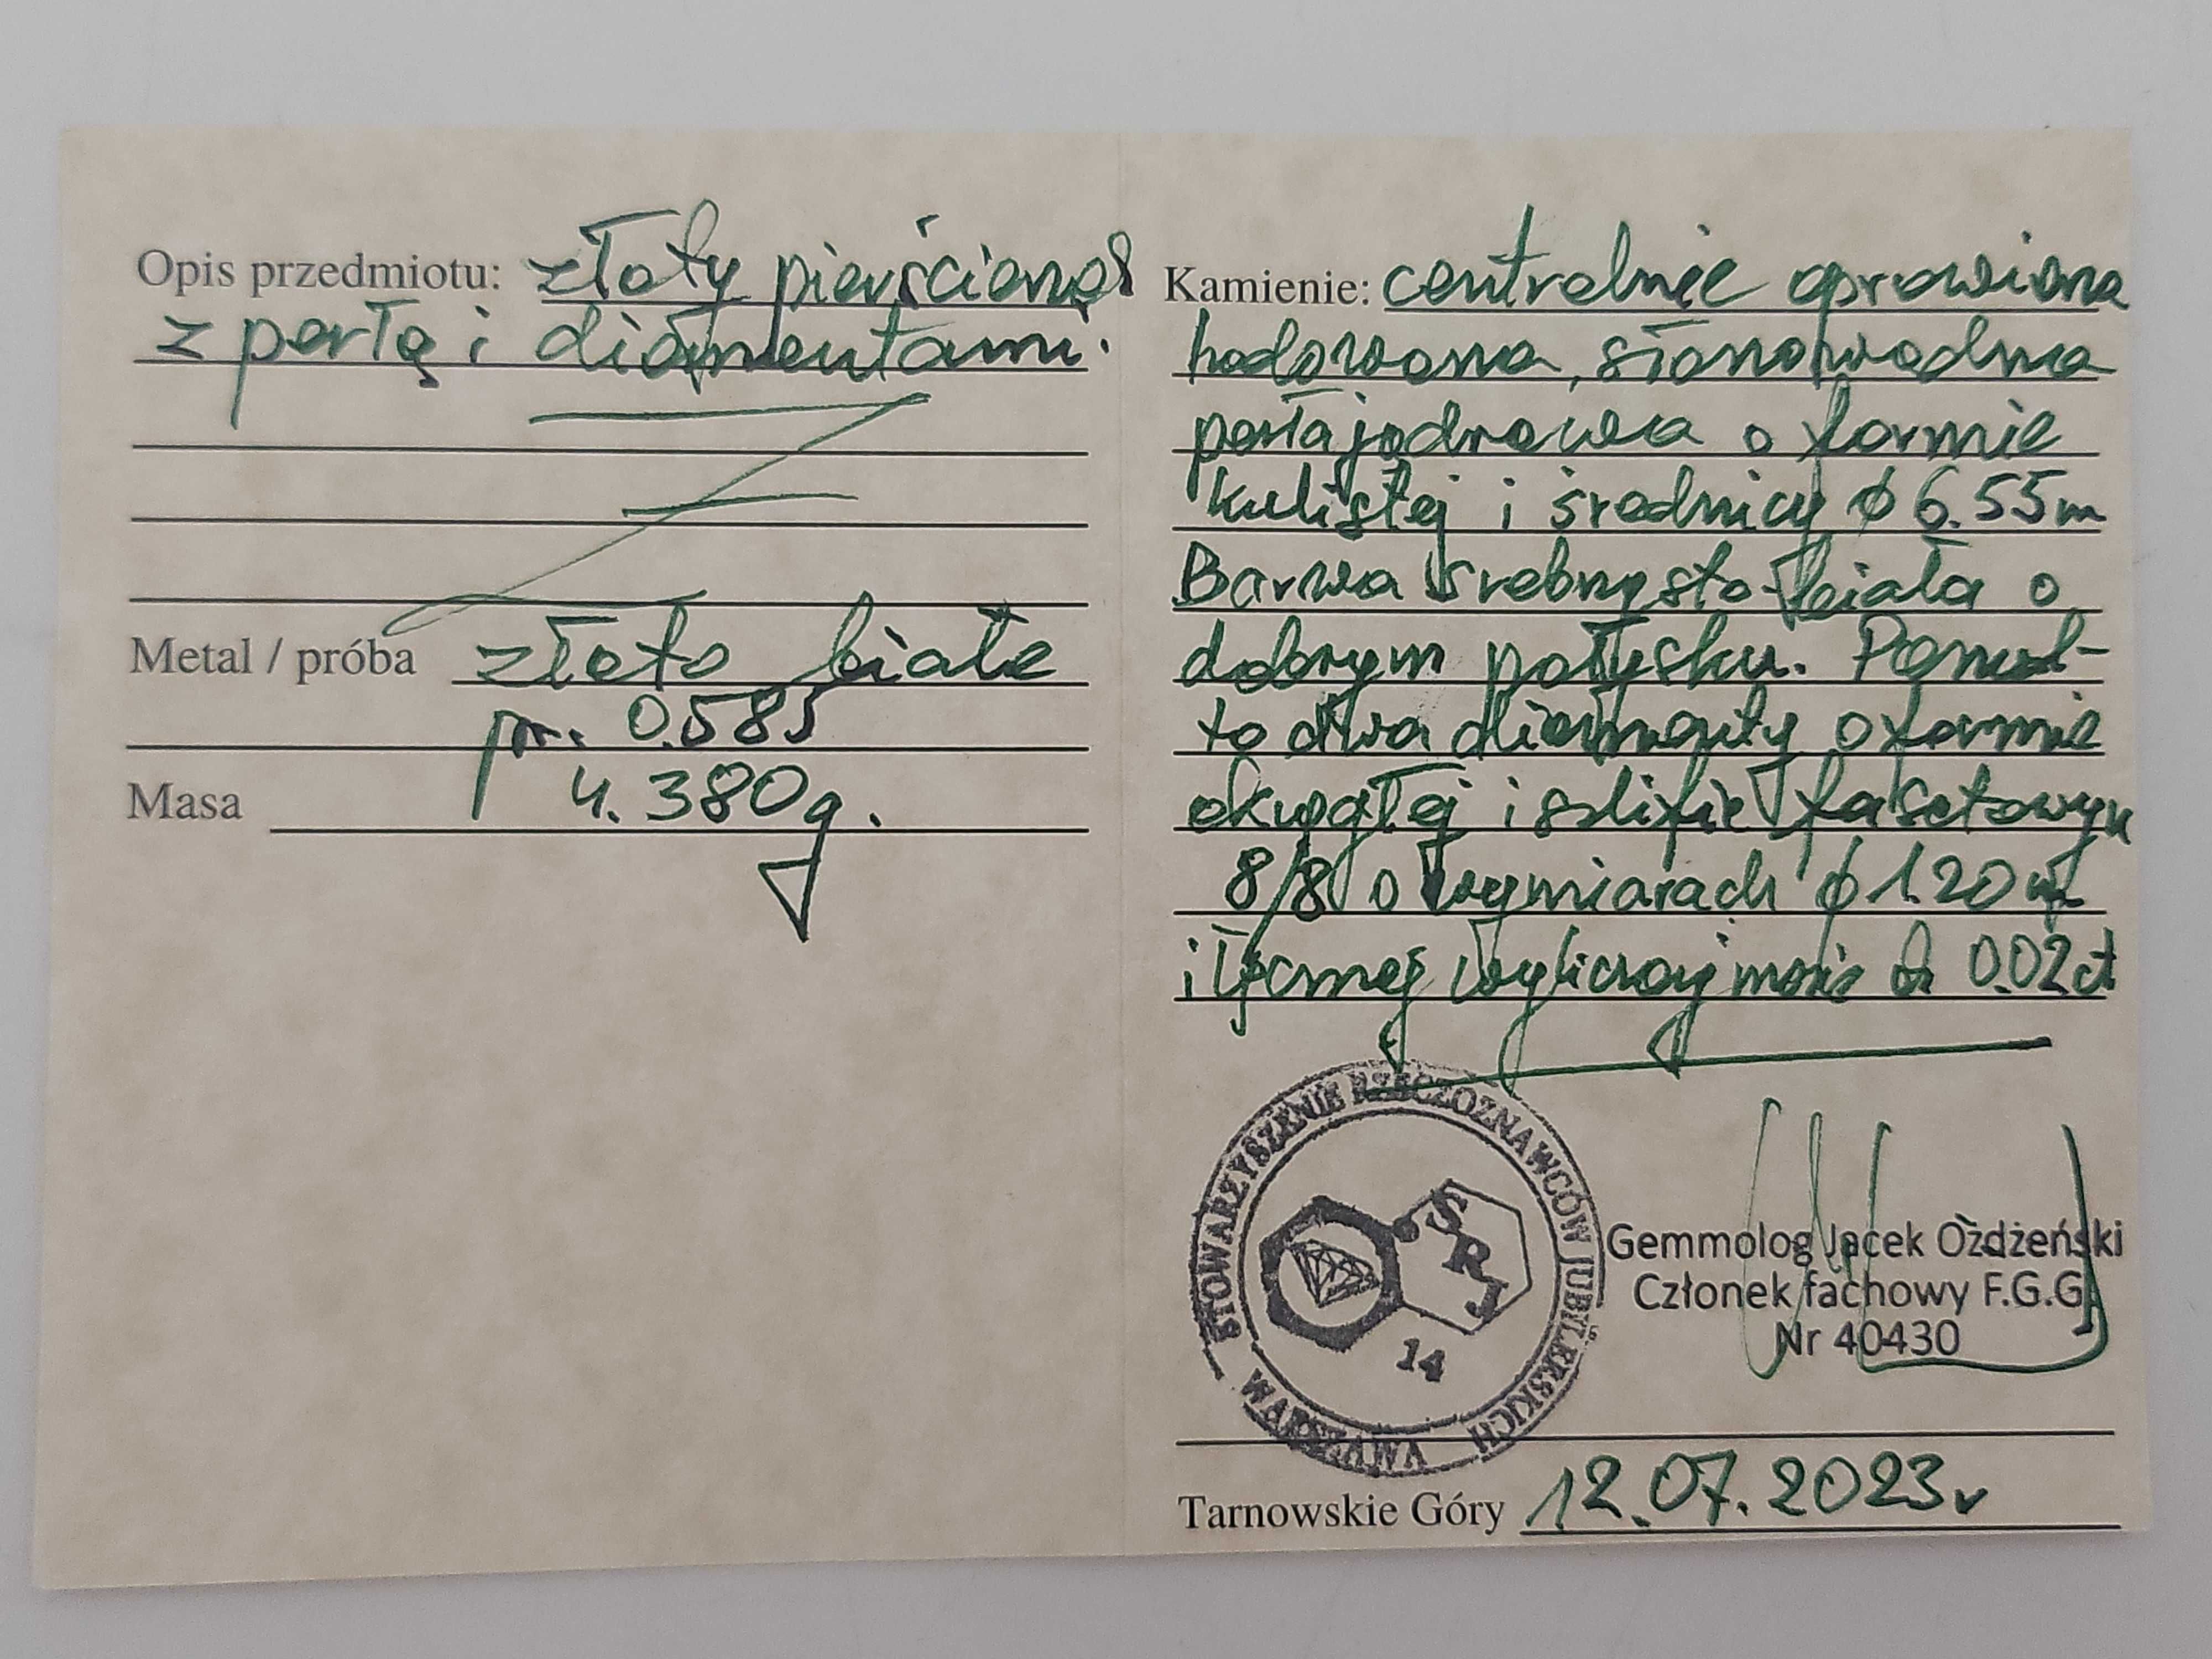 Opis przedmiotu: złoty pierścionek
z perłą i diamentami.
Metal / próba złoto białe
pr. 0.585
Masa 4.380g.
Kamienie: centralnie oprawiona
hodowana, słonowodna
perła jądrowa o formie
kulistej i średnicy ϕ 6.55m
Barwa srebrzysto-biała o
dobrym połysku. Ponad-
to dwa diamenty o formie
okrągłej i szlifie fasetowym
8/8 o wymiarach ϕ 1.20 m
i łącznej wyliczonej masie 0.02ct
STOWARZYSZENIE RZECZOZNAWCÓW JUBILERSKICH
WARSZAWA
SRJ
14
Gemmolog Jacek Ożdżeński
Członek fachowy F.G.G.
Nr 40430
Tarnowskie Góry 12.07.2023r